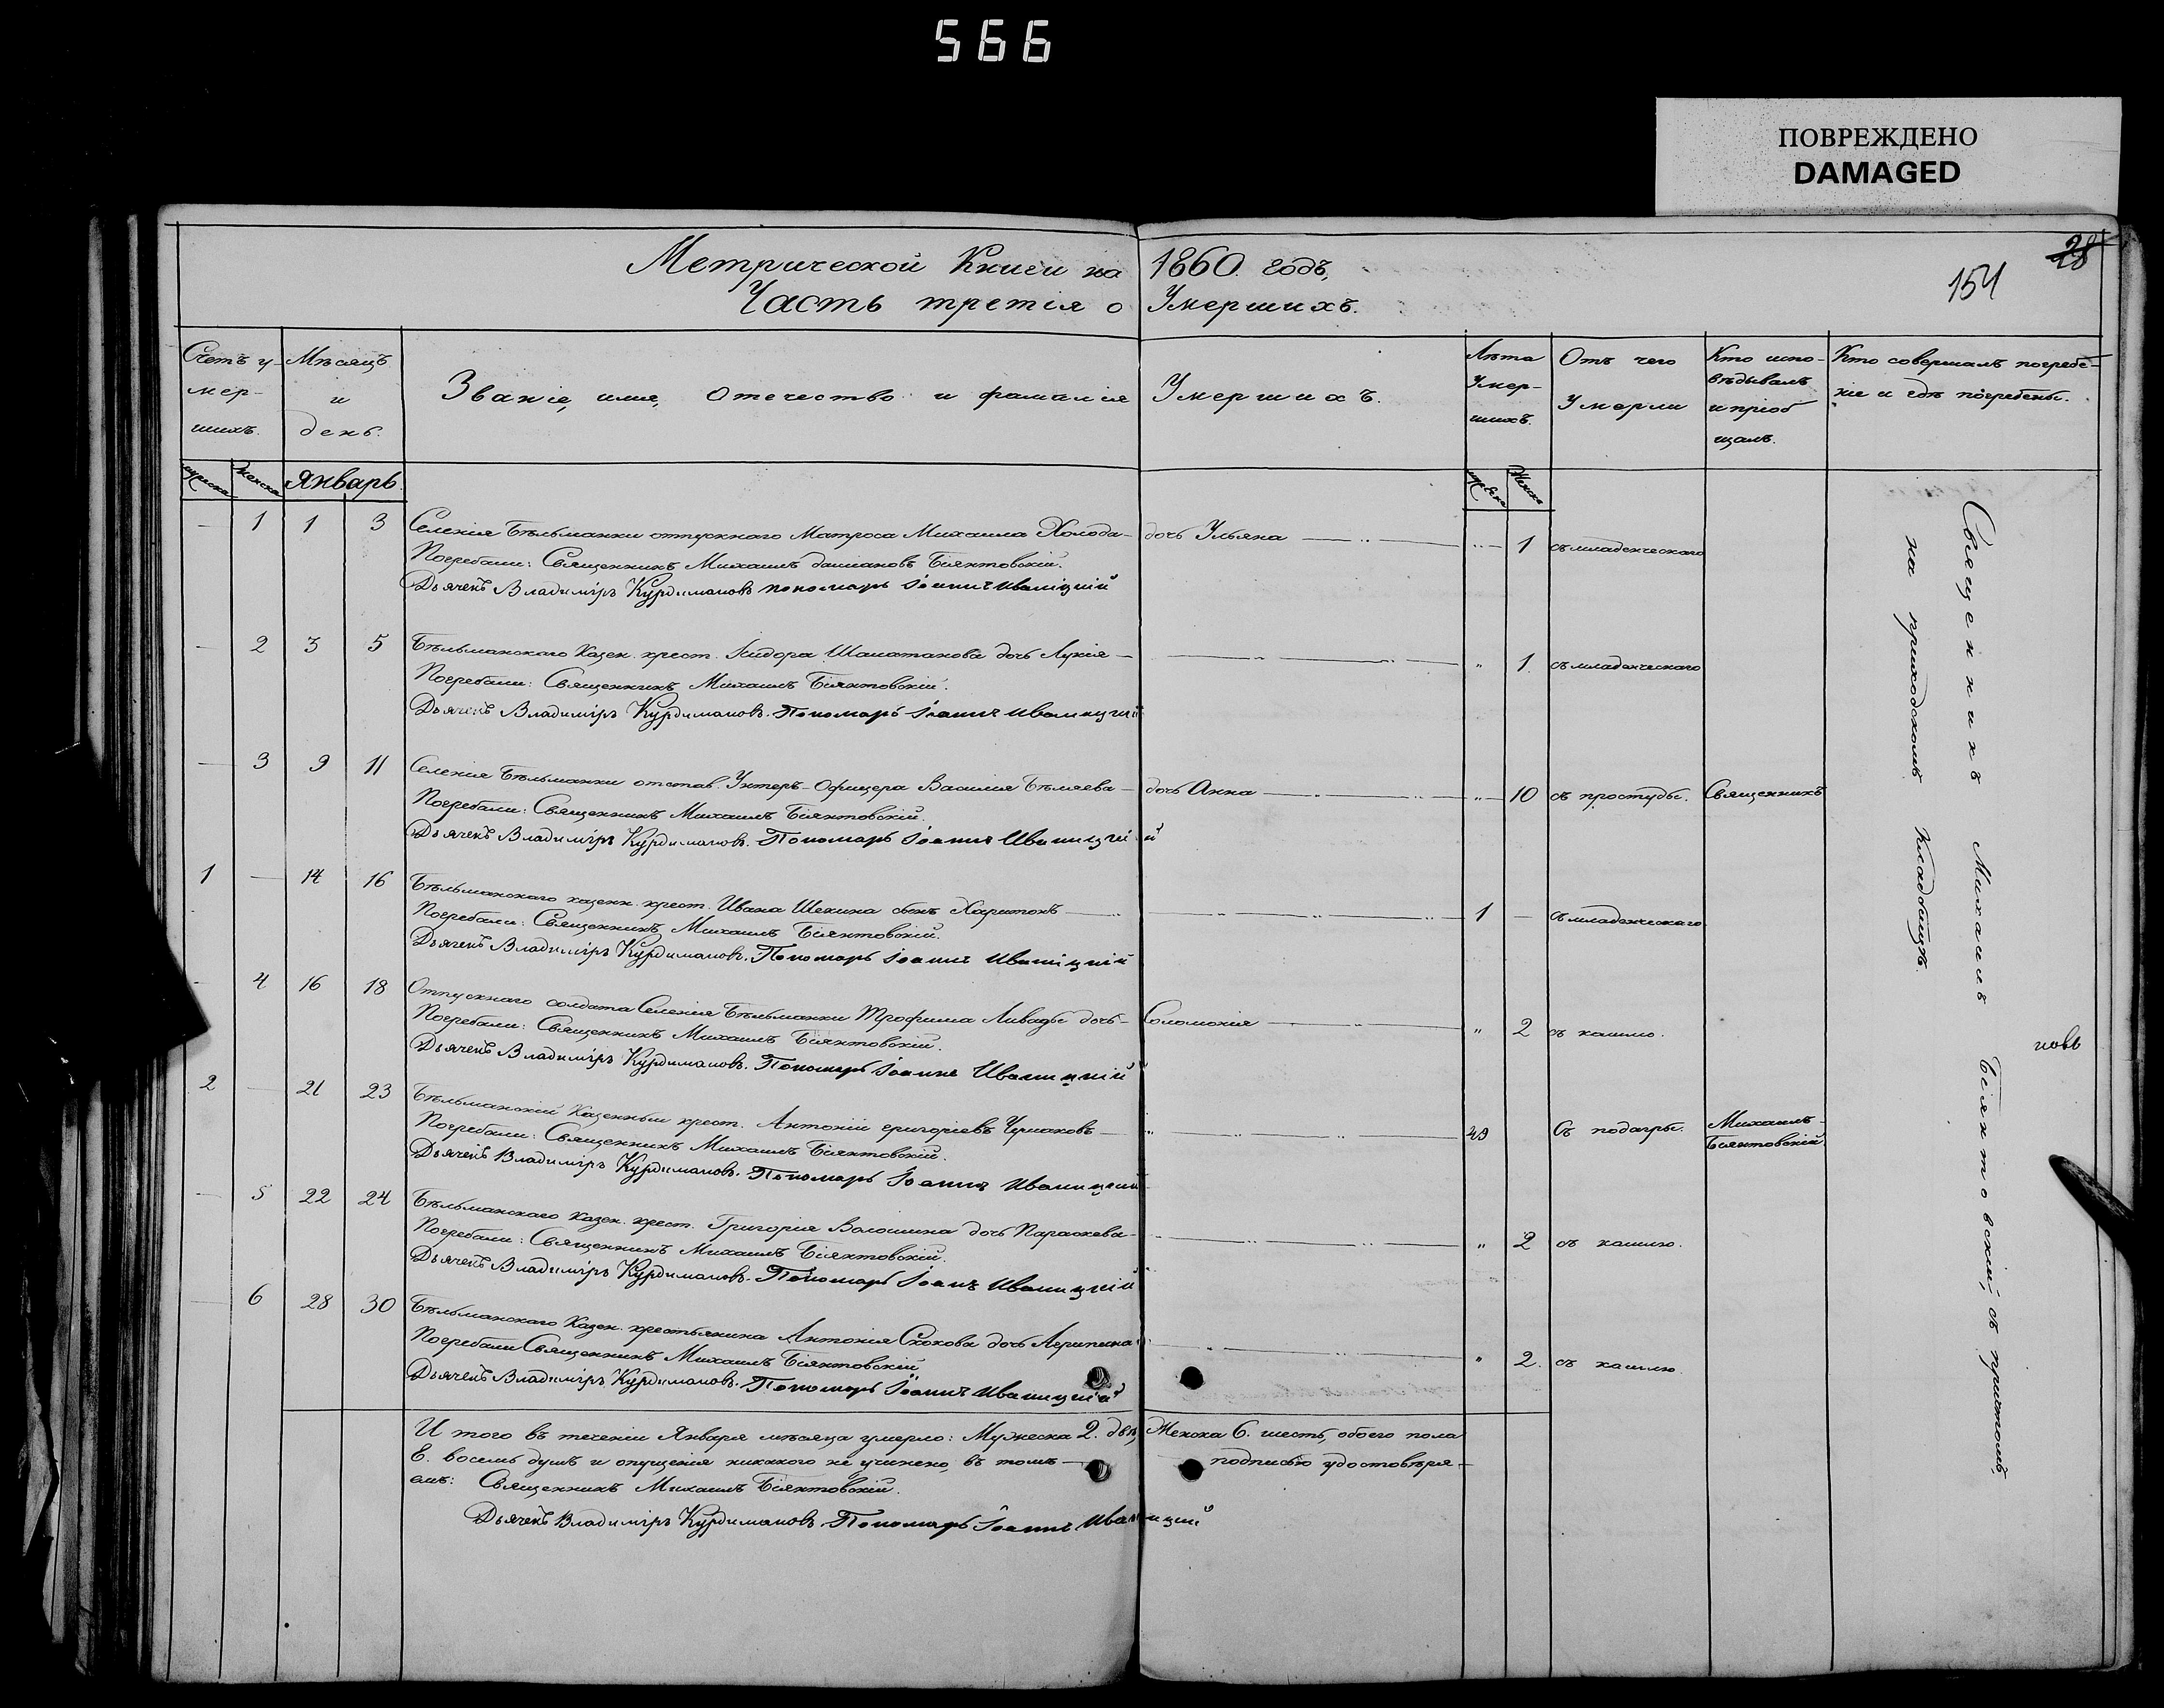 566
ПОВРЕЖДЕНО
DAMAGED
28
154
Метрической Книги на 1860 годъ,
Часть третія о Умершихъ.
Счетъ у-
мер-
шихъ.
Мѣсяцъ
и
день.
Званіе, имя, отечество и фамилія Умершихъ.
Лѣта
Умер-
шихъ.
Отъ чего
Умерли
Кто испо-
вѣдывалъ
и пріоб
щалъ.
Кто совершалъ погребе-
ніе и гдѣ погребены.
мужеска женска Январь
мужеска женска
— 1 1 3 Селенія Бѣльманки отпускнаго Матроса Михаила Холода- дочь Ульяна — 1 съ младенческаго
Погребали: Священникъ Михаилъ Біянтовскій.
Дьячекъ Владиміръ Курдимановъ пономарь Іоаннъ Иваницкій
— 2 3 5 Бѣльманскаго Казен. крест. Исидора дочь Лукія — " 1 съ младенческаго
Погребали: Священникъ Михаилъ Біянтовскій.
Дьячекъ Владиміръ Курдимановъ. Пономарь Іоаннъ Иваницкій
— 3 9 11 Селенія Бѣльманки отстав. Унтеръ-Офицера Василія Бѣляева — дочь Анна — " 10 съ простуды. Священникъ
Погребали: Священникъ Михаилъ Біянтовскій.
Дьячекъ Владиміръ Курдимановъ. Пономарь Іоаннъ Иваницкій
1 — 14 16 Бѣльманскаго казенн. крест. Ивана Шекина сынъ Харитонъ — 1 — съ младенческаго
Погребали: Священникъ Михаилъ Біянтовскій.
Дьячекъ Владиміръ Курдимановъ. Пономарь Іоаннъ Иваницкій
- 4 16 18 Отпускнаго солдата Селенія Бѣльманки Трофима Ливады дочь- Соломонія — " 2 съ кашлю.
Погребали: Священникъ Михаилъ Біянтовскій.
Дьячекъ Владиміръ Курдимановъ. Пономарь Іоаннъ Иваницкій
2 — 21 23 Бѣльманскій Казенный крест. Антоній Григоріевъ Чумаковъ — 49 Съ подагры. Михаилъ
Біянтовскій.
Погребали: Священникъ Михаилъ Біянтовскій.
Дьячекъ Владиміръ Курдимановъ. Пономарь Іоаннъ Иваницкій
— 5 22 24 Бѣльманскаго Казен. крест. Григорія Волошина дочь Параскева — " 2 съ кашлю.
Погребали: Священникъ Михаилъ Біянтовскій.
Дьячекъ Владиміръ Курдимановъ. Пономарь Іоаннъ Иваницкій
— 6 28 30 Бѣльманскаго Казен. крестьянина Антонія Скокова дочь Агрипина — " 2. съ кашлю.
Погребали Священникъ Михаилъ Біянтовскій
Дьячекъ Владиміръ Курдимановъ. Пономарь Іоаннъ Иваницкій
И того въ теченіи Января мѣсяца умерло: Мужеска 2. два, Женска 6. шесть, обоего пола
8. восемь душъ и опущенія никакого не учинено, въ томъ — подписью удостовѣря-
емъ: Священникъ Михаилъ Біянтовскій.
Дьячекъ Владиміръ Курдимановъ Пономарь Іоаннъ Иваницкій
Священникъ Михаилъ Біянтовскій, съ причтомъ,
на приходскомъ кладбищѣ.